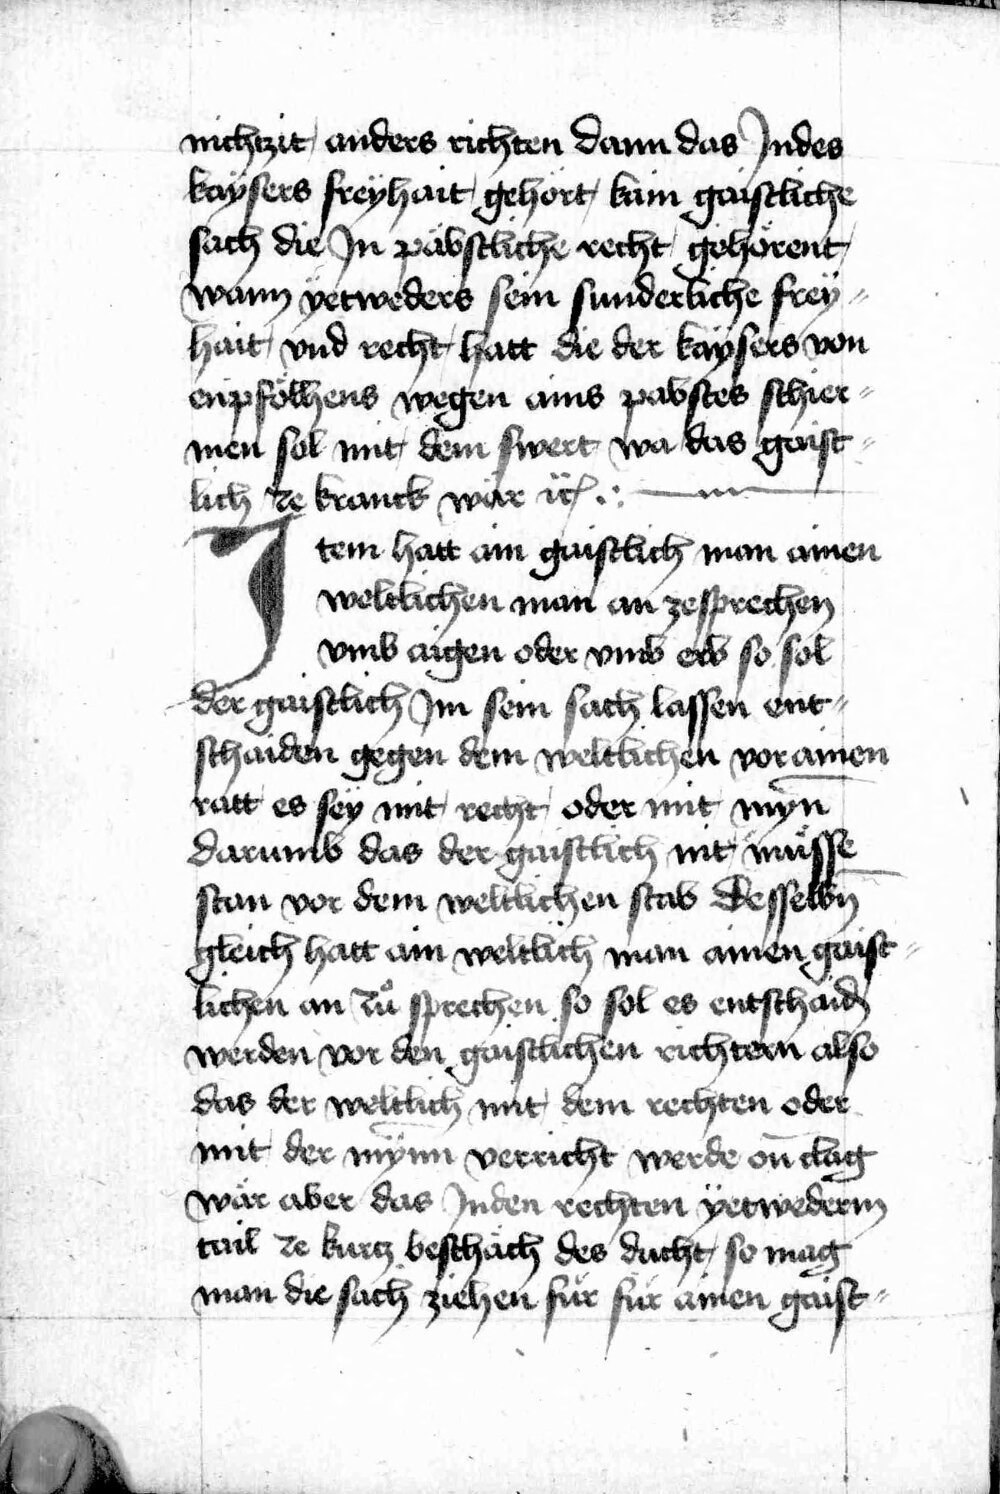 nichtzit anders richten dann das Indes
kaÿsers freÿhait gehört kain gaistliche
sach die In päbstliche recht gehörent
wann ÿetweders sein sunderliche freÿ=
hait vnd recht hatt die der kaÿsers von
enpfölhens wegen ains pabstes schier=
men sol mit dem swert wa das gaist=
lich ze kranck wär ꝛc̈
Item hatt ain gaistlich man ainen
weltlichen man an zesprechen
vmb aigen oder vmb erb so sol
der gaistlich Im sein sach lassen ent=
schaiden gegen dem weltlichen vor ainen
ratt es seÿ mit recht oder mit mÿn̄
darumb das der gaistlich nit müsse
stan vor dem weltlichen stab Desselbn̄
gleich hatt ain weltlich man ainen gaist=
lichen an zů sprechen so sol es entschaidn̄
werden vor den gaistlichen richtern also
das der weltlich mit dem rechten oder
mit der mÿnn verricht werde on̄ clag
wär aber das Inden rechten ÿetwederm
tail ze kurcz beschäch des ducht so mag
man die sach ziehen für für ainen gaist=